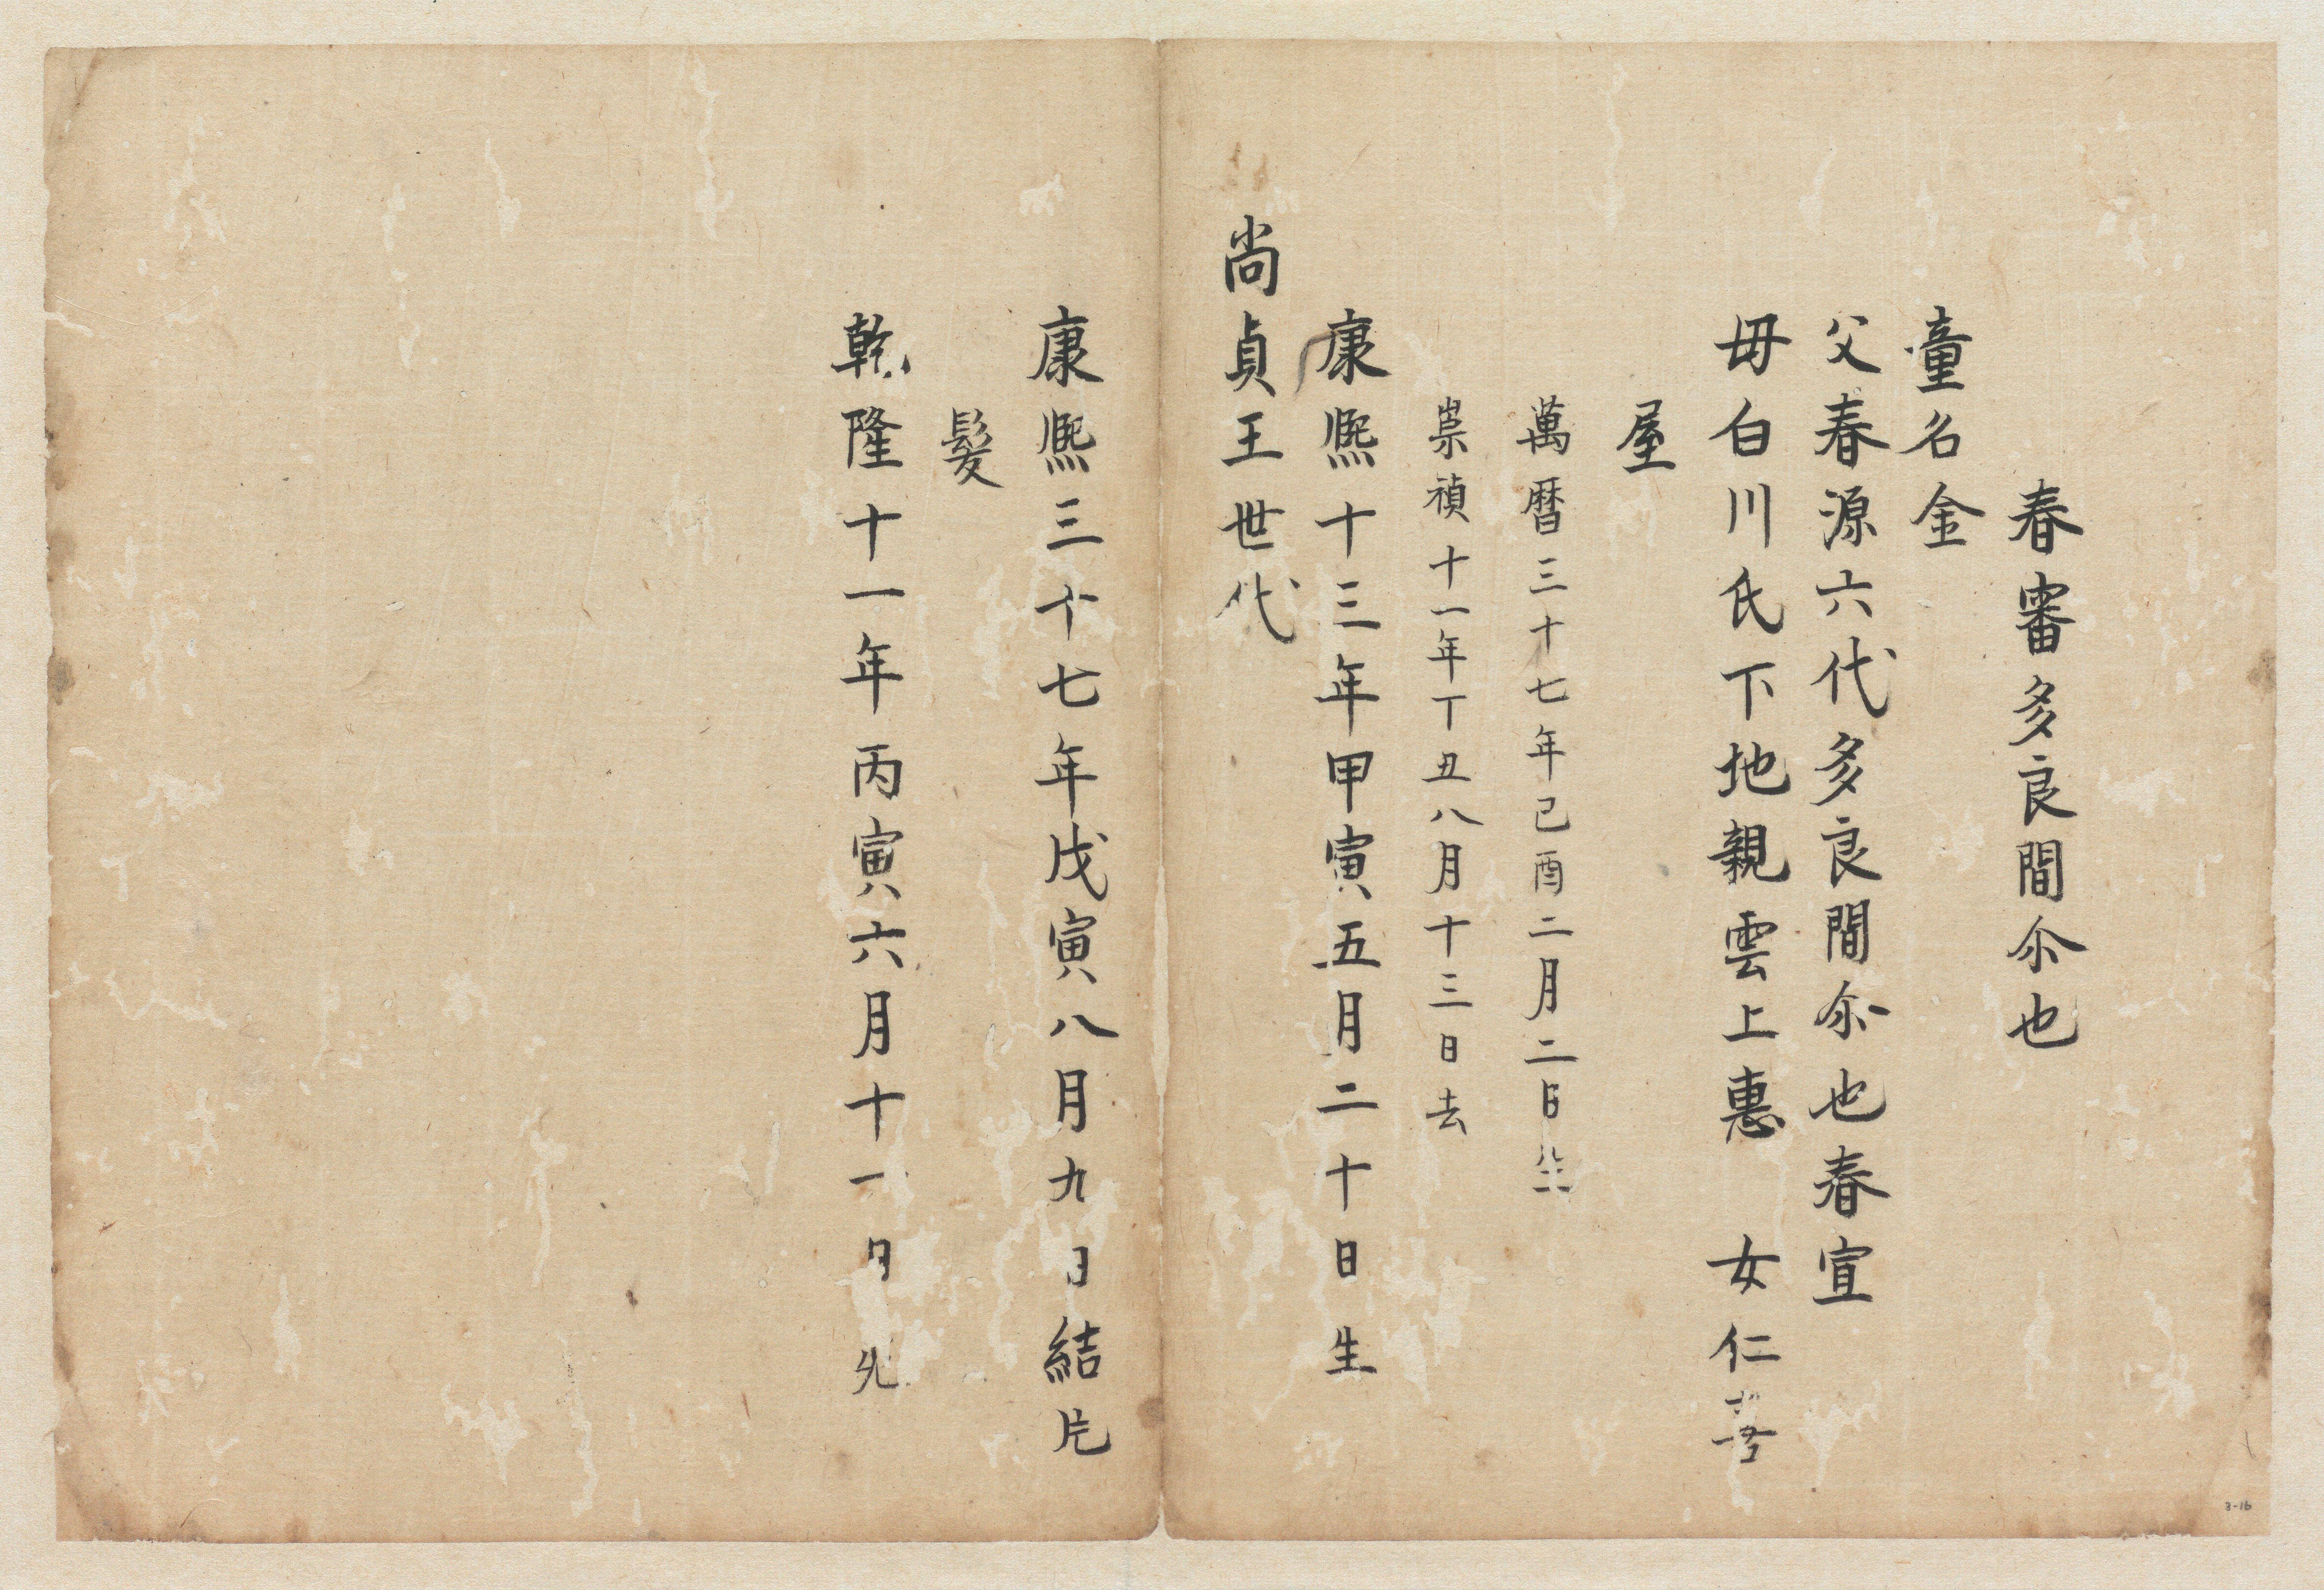 春審多良間尒也
童名金
父春源六代多良間尒也春宣
毋白川氏下地親雲上惠 女仁
屋
萬暦三十七年己酉二月二日生
崇禎十一年丁丑八月十三日去
康熈十三年甲寅五月二十日生
尚貞王世代
康熈三十七年戊寅八月九日結片
髮
乾隆十一年丙寅六月十一日死
3-16